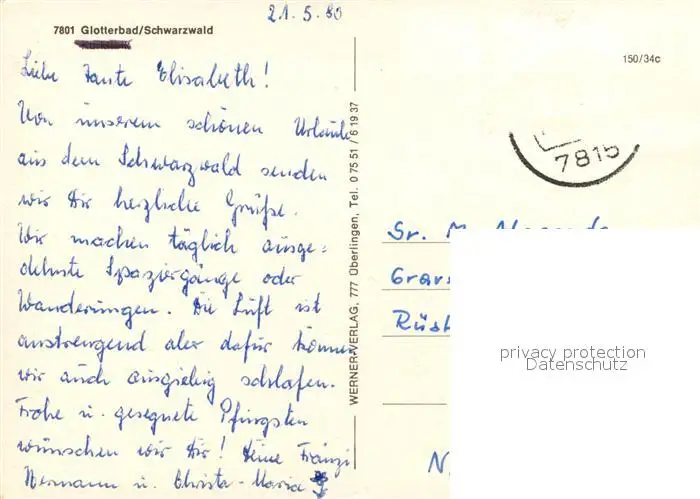 21.5.80
7801 Glotterbad/Schwarzwald
Liebe Tante Elisabeth!
Von unserem schönen Urlaube
aus dem Schwarzwald senden
wir Dir herzliche Grüße.
Wir machen täglich ausge-
dehnte Spaziergänge oder
Wanderungen. Die Luft ist
anstrengend aber dafür können
wir auch ausgiebig schlafen.
Frohe u. gesegnete Pfingsten
wünschen wir Dir! Deine Fränzi
Hermann u. Christa-Maria
WERNER-VERLAG, 777 Überlingen, Tel. 0 75 51 / 6 19 37
150/34c
7815
Sr. M.
privacy protection
Datenschutz